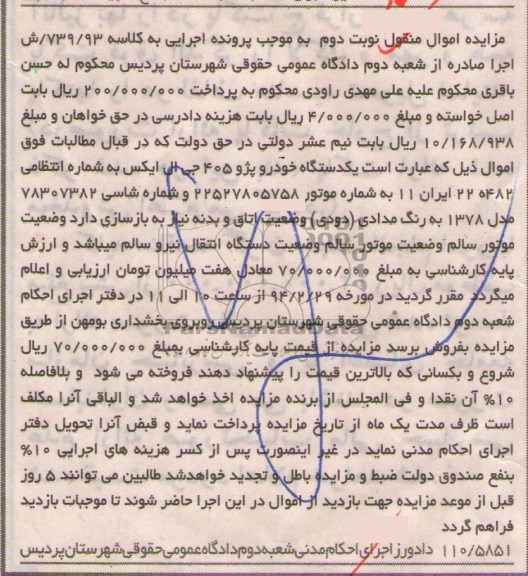 مزایده اموال منقول نوبت دوم به موجب پرونده اجرایی به کلاسه ۷۳۹/۹۳/ش
اجرا صادره از شعبه دوم دادگاه عمومی حقوقی شهرستان پردیس محکوم له حسن
باقری محکوم علیه علی مهدی راودی محکوم به پرداخت ۲۰۰/۰۰۰/۰۰۰ ریال بابت
اصل خواسته و مبلغ ۴/۰۰۰/۰۰۰ ریال بابت هزینه دادرسی در حق خواهان و مبلغ
۱۰/۱۶۸/۹۳۸ ریال بابت نیم عشر دولتی در حق دولت که در قبال مطالبات فوق
اموال ذیل که عبارت است یکدستگاه خودرو پژو ۴۰۵ جی ال ایکس به شماره انتظامی
۴۸۲ه ۲۲ ایران ۱۱ به شماره موتور ۲۲۵۲۷۸۰۵۷۵۸ و شماره شاسی ۷۸۳۰۷۳۸۲
مدل ۱۳۷۸ به رنگ مدادی (دودی) وضعیت اتاق و بدنه نیاز به بازسازی دارد وضعیت
موتور سالم وضعیت موتور سالم وضعیت دستگاه انتقال نیرو سالم میباشد و ارزش
پایه کارشناسی به مبلغ ۷۰/۰۰۰/۰۰۰ معادل هفت میلیون تومان ارزیابی و اعلام
میگردد مقرر گردید در مورخه ۹۴/۲/۲۹ از ساعت ۱۰ الی ۱۱ در دفتر اجرای احکام
شعبه دوم دادگاه عمومی حقوقی شهرستان پردیس روبروی بخشداری بومهن از طریق
مزایده بفروش برسد مزایده از قیمت پایه کارشناسی بمبلغ ۷۰/۰۰۰/۰۰۰ ریال
شروع و بکسانی که بالاترین قیمت را پیشنهاد دهند فروخته می شود و بلافاصله
۱۰% آن نقدا و فی المجلس از برنده مزایده اخذ خواهد شد و الباقی آنرا مکلف
است ظرف مدت یک ماه از تاریخ مزایده پرداخت نماید و قبض آنرا تحویل دفتر
اجرای احکام مدنی نماید در غیر اینصورت پس از کسر هزینه های اجرایی ۱۰%
بنفع صندوق دولت ضبط و مزایده باطل و تجدید خواهدشد طالبین می توانند ۵ روز
قبل از موعد مزایده جهت بازدید از اموال در این اجرا حاضر شوند تا موجبات بازدید
فراهم گردد
۱۱۰/۵۸۵۱ دادورز اجرای احکام مدنی شعبه دوم دادگاه عمومی حقوقی شهرستان پردیس